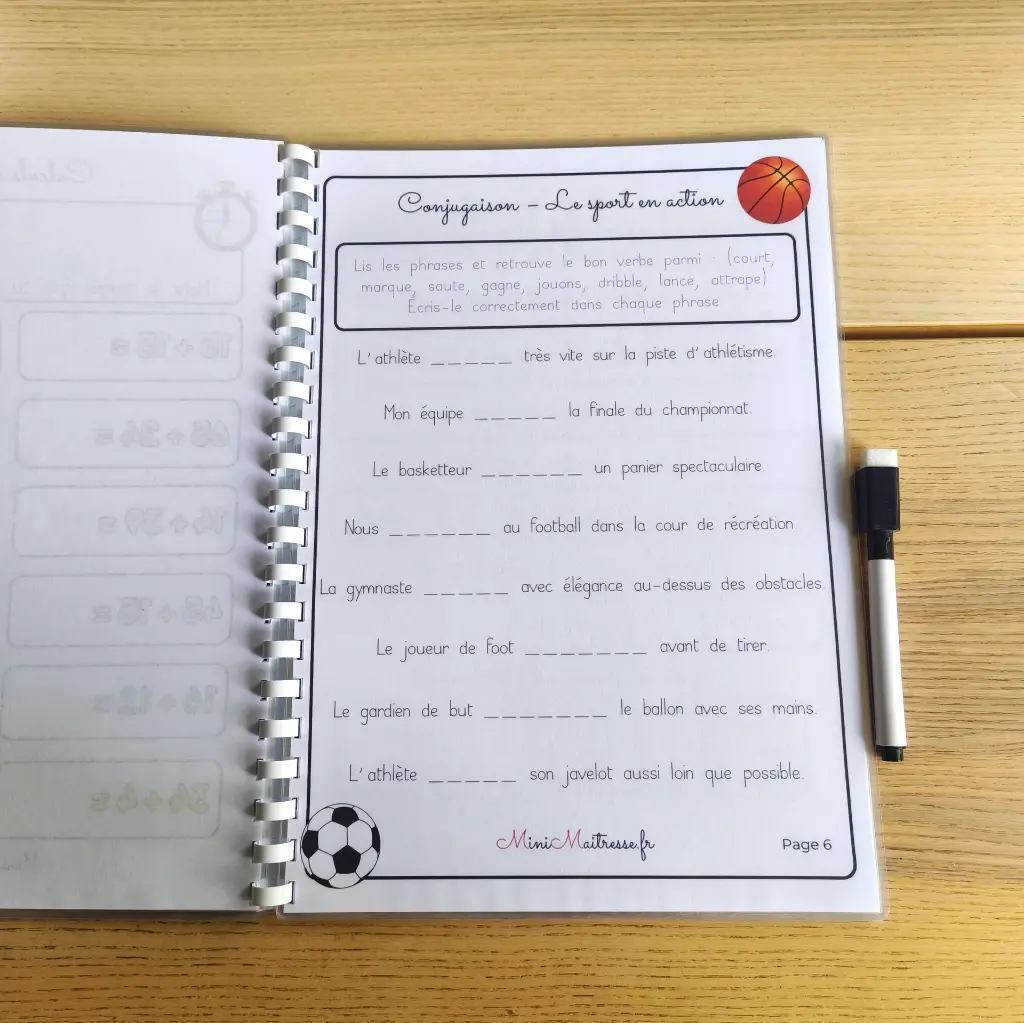 Conjugaison - Le sport en action
Lis les phrases et retrouve le bon verbe parmi : (court,
marque, saute, gagne, jouons, dribble, lance, attrape)
Écris-le correctement dans chaque phrase
L'athlète _____ très vite sur la piste d'athlétisme.
Mon équipe _____ la finale du championnat.
Le basketteur ______ un panier spectaculaire.
Nous ______ au football dans la cour de récréation.
La gymnaste _____ avec élégance au-dessus des obstacles.
Le joueur de foot _______ avant de tirer.
Le gardien de but _______ le ballon avec ses mains.
L'athlète _____ son javelot aussi loin que possible.
MiniMaitresse.fr
Page 6